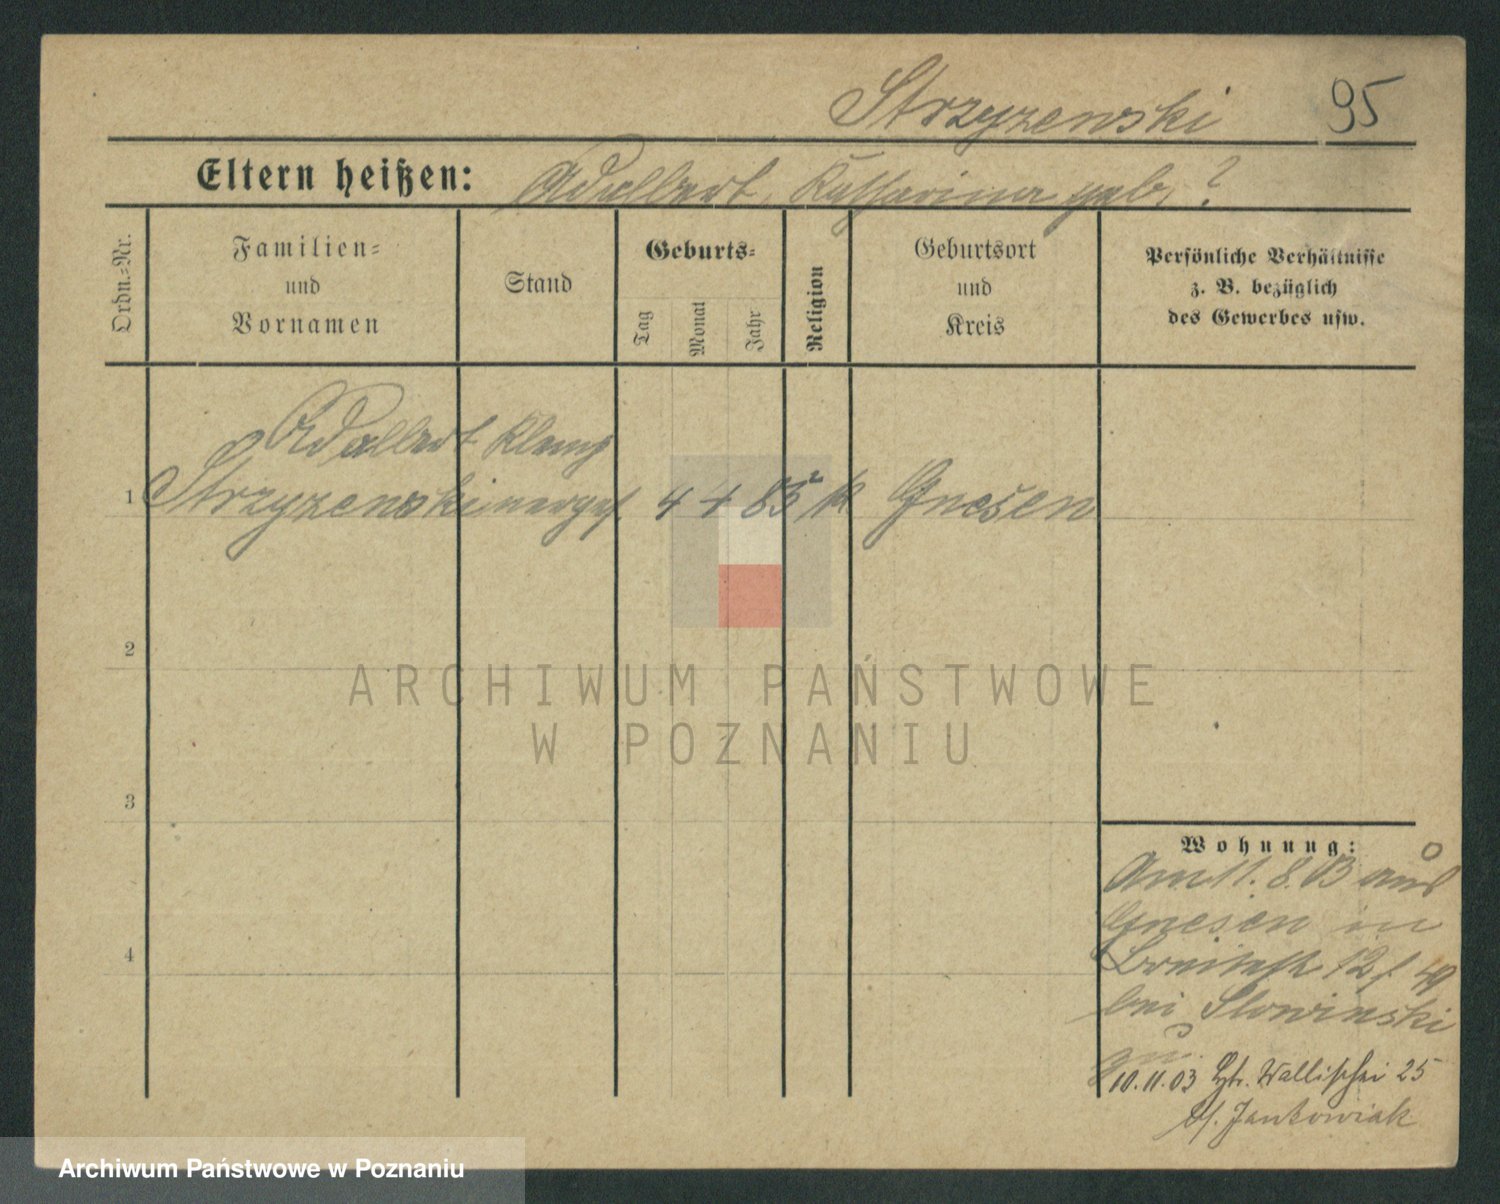 Strzyzewski 95
Eltern heißen: Adalbert, Katharina geb. ?
Ordn.=Nr.
Familien=
und
Vornamen
Stand
Geburts=
Tag
Monat
Jahr
Religion
Geburtsort
und
Kreis
Persönliche Verhältnisse
z. B. bezüglich
des Gewerbes usw.
Adalbert Klemp
1 Strzyzewski nerges. 4 4 85 k Gnesen
2
ARCHIWUM PAŃSTWOWE
W POZNANIU
3
Wohnung:
Am 11. 8. 03 aus
Gnesen in
Breitestr 12
bei Slowinski
zu
10.11.03 Wallischei 25
b/. Jankowiak
4
Archiwum Państwowe w Poznaniu